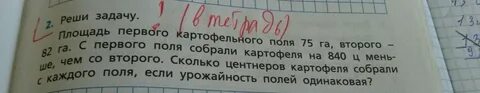 2. Реши задачу. (в тетрадь)
Площадь первого картофельного поля 75 га, второго –
82 га. С первого поля собрали картофеля на 840 ц мень-
ше, чем со второго. Сколько центнеров картофеля собрали
с каждого поля, если урожайность полей одинаковая?